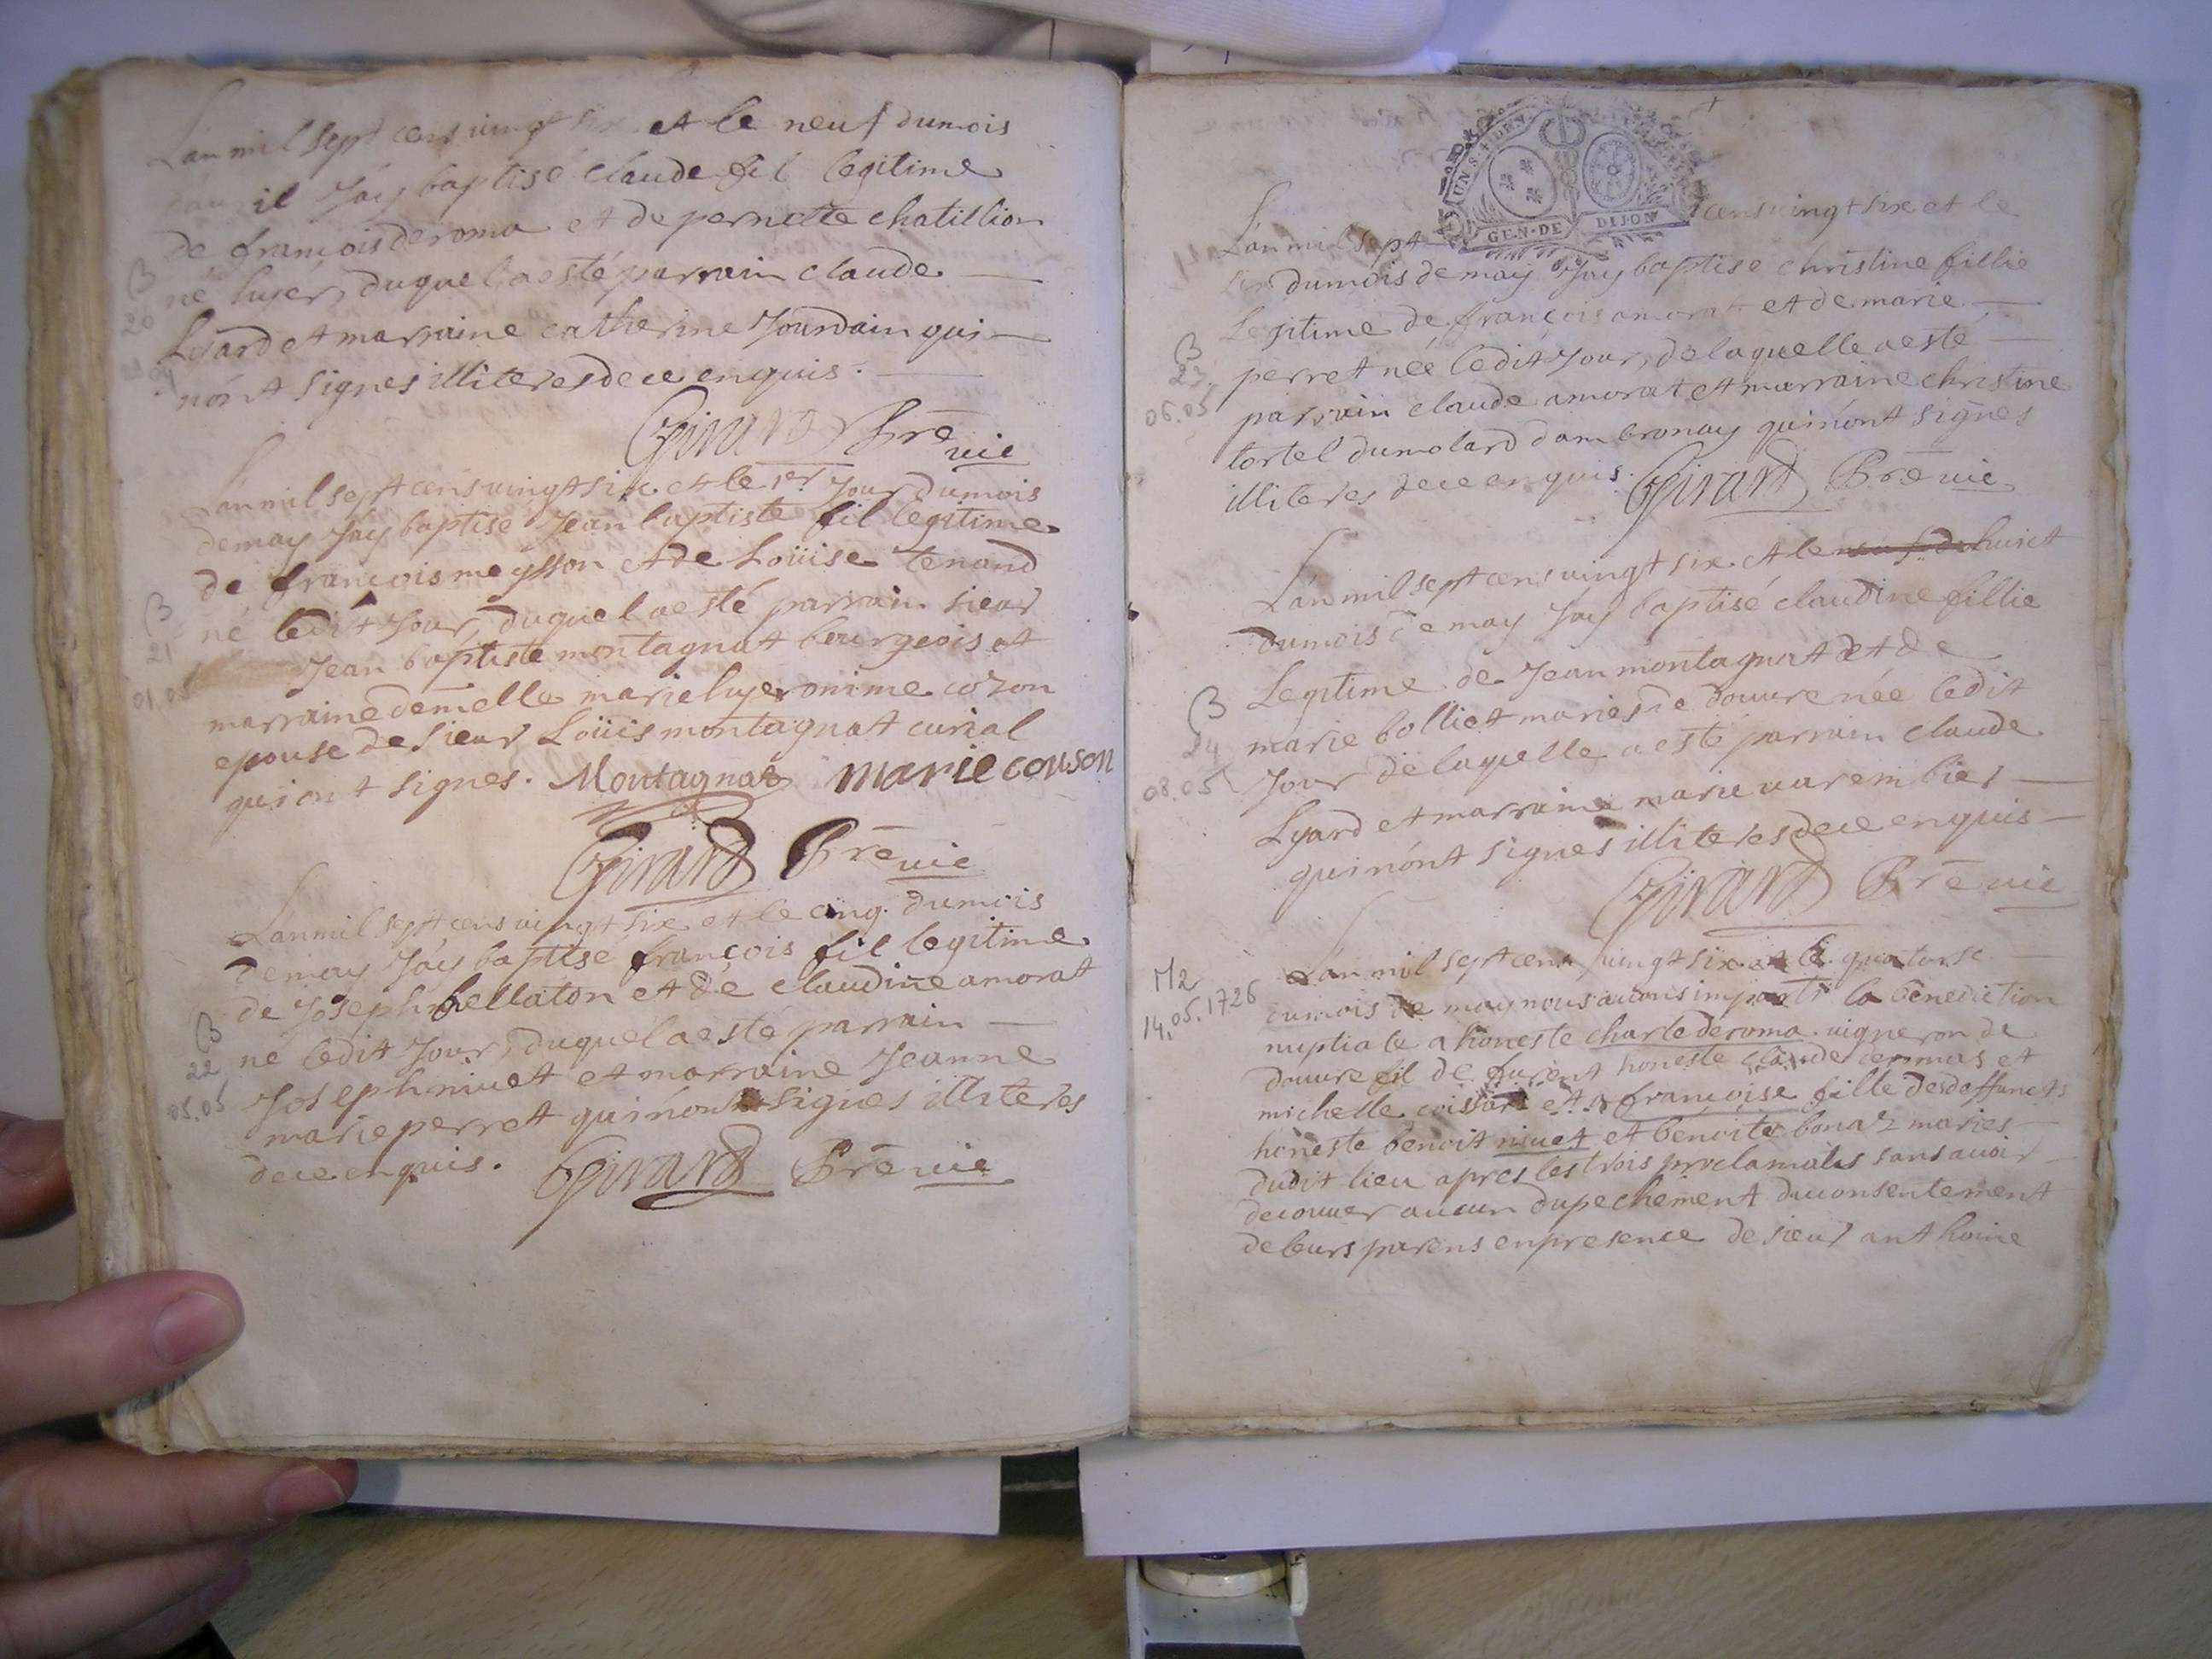 Lan mil sept cens vingt six et le neuf du mois
dauril Jáy baptisé claude fil legitime
de françois deroma et de pernette chatillion
né hyer, duquel a esté parrain claude
Lyard et marraine catherine Jourdain qui
nónt signes illiteres de ce enquis.
B
20
04
Girard Prē vic
Lan mil sept cens vingt six et le 1er Jour du mois
de may Jáy baptise Jean baptiste fil legitime
de françois meysson et de Loüise tenand
né ledit Jour, duquel a esté parrain sieur
Jean baptiste montagnat bourgeois et
marraine demelle marie hyeronime cozon
epouse de sieur Loüis montagnat curial
qui ont signes. Montagnat marie couson
B
21
01.05
Girard Prē vic
Lan mil sept cens vingt six et le cinq. du mois
de may Jáy baptisé françois fil legitime
de Joseph bellaton et de claudine amorat
né ledit Jour, duquel a esté parrain
Joseph niuet et marraine Jeanne
marie perret qui nont signes illiteres
de ce enquis. Girard Prē vic
B
22
05.05
UNS+DEN
GEN·DE DIJON
Lan mil sept cens vingt six et le
six du mois de may Jay baptise christine fillie
Legitime de françois amorat et de marie
perret née ledit Jour, de laquelle a esté
parrain claude amorat et marraine christine
tortel dumolard dambronay qui nónt signes
illiteres de ce enquis. Girard Prē vic
B
23
06.05
Lán mil sept cens vingt six et le neuf de huict
du mois de may Jay baptisé claudine fillie
Legitime de Jean montagnat et de
marie bolliet maries de douure née ledit
Jour de laquelle a esté parrain claude
Lyard et marraine marie uarembier
qui nónt signes illiteres de ce enquis
B
24
08.05
Girard Prē vic
M2
14.05.1726
Lan mil sept cens vingt six et le quatorse
du mois de may nous auons imparti la benediction
nuptiale a honeste charle deroma uigneron de
douure fil de furent honeste claude deromas et
michelle et a françoise fille des deffuncts
honeste benoit niuet et benoite bonaz maries
dudit lieu apres les trois proclamatēs sans auoir
decouuer aucun dupechement du consentement
de leurs parens en presence de sieur anthoine